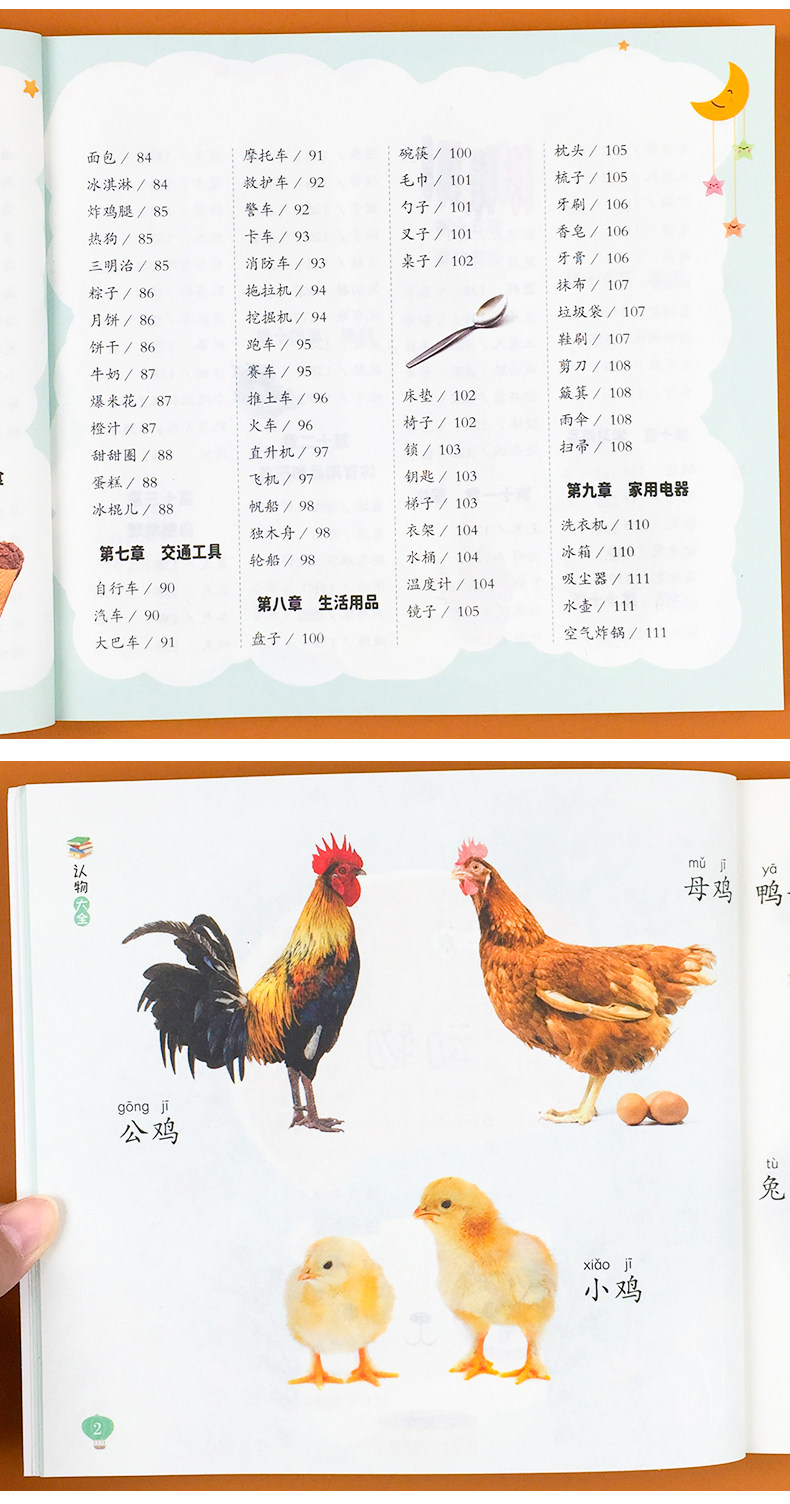 面包 / 84
冰淇淋 / 84
炸鸡腿 / 85
热狗 / 85
三明治 / 85
粽子 / 86
月饼 / 86
饼干 / 86
牛奶 / 87
爆米花 / 87
橙汁 / 87
甜甜圈 / 88
蛋糕 / 88
冰棍儿 / 88
第七章 交通工具
自行车 / 90
汽车 / 90
大巴车 / 91
摩托车 / 91
救护车 / 92
警车 / 92
卡车 / 93
消防车 / 93
拖拉机 / 94
挖掘机 / 94
跑车 / 95
赛车 / 95
推土车 / 96
火车 / 96
直升机 / 97
飞机 / 97
帆船 / 98
独木舟 / 98
轮船 / 98
第八章 生活用品
盘子 / 100
碗筷 / 100
毛巾 / 101
勺子 / 101
叉子 / 101
桌子 / 102
床垫 / 102
椅子 / 102
锁 / 103
钥匙 / 103
梯子 / 103
衣架 / 104
水桶 / 104
温度计 / 104
镜子 / 105
枕头 / 105
梳子 / 105
牙刷 / 106
香皂 / 106
牙膏 / 106
抹布 / 107
垃圾袋 / 107
鞋刷 / 107
剪刀 / 108
簸箕 / 108
雨伞 / 108
扫帚 / 108
第九章 家用电器
洗衣机 / 110
冰箱 / 110
吸尘器 / 111
水壶 / 111
空气炸锅 / 111
认物大全
mǔ jī
母鸡
yā
鸭
gōng jī
公鸡
tù
兔
xiǎo jī
小鸡
2